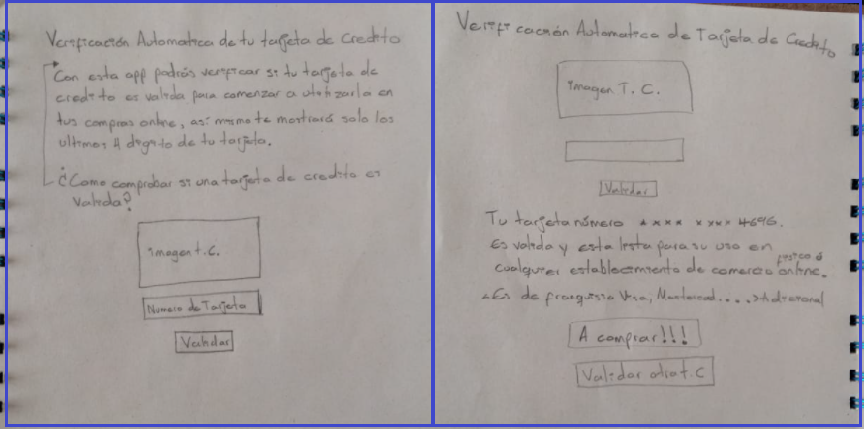 Verificación Automatica de tu tarjeta de credito
Con esta app podrás verificar si tu tarjeta de
credito es valida para comenzar a utilizarla en
tus compras online, asi mismo te mostrará solo los
ultimos 4 digito de tu tarjeta.
¿Como comprobar si una tarjeta de credito es
valida?
imagen t.c.
Numero de Tarjeta
Validar
Verificación Automatica de Tarjeta de Credito
imagen T. C.
Validar
Tu tarjeta número xxxx xxxx 4646.
Es valida y esta lista para su uso en
cualquier establecimiento de comercio fisico ó online.
Es de franquisia Visa, Mastercard....
A comprar!!!
Validar otra t.C